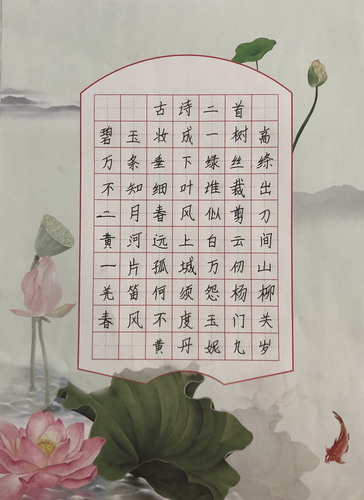 古诗二首
碧玉妆成一树高
万条垂下绿丝绦
不知细叶谁裁出
二月春风似剪刀
黄河远上白云间
一片孤城万仞山
羌笛何须怨杨柳
春风不度玉门关
黄丹妮九岁